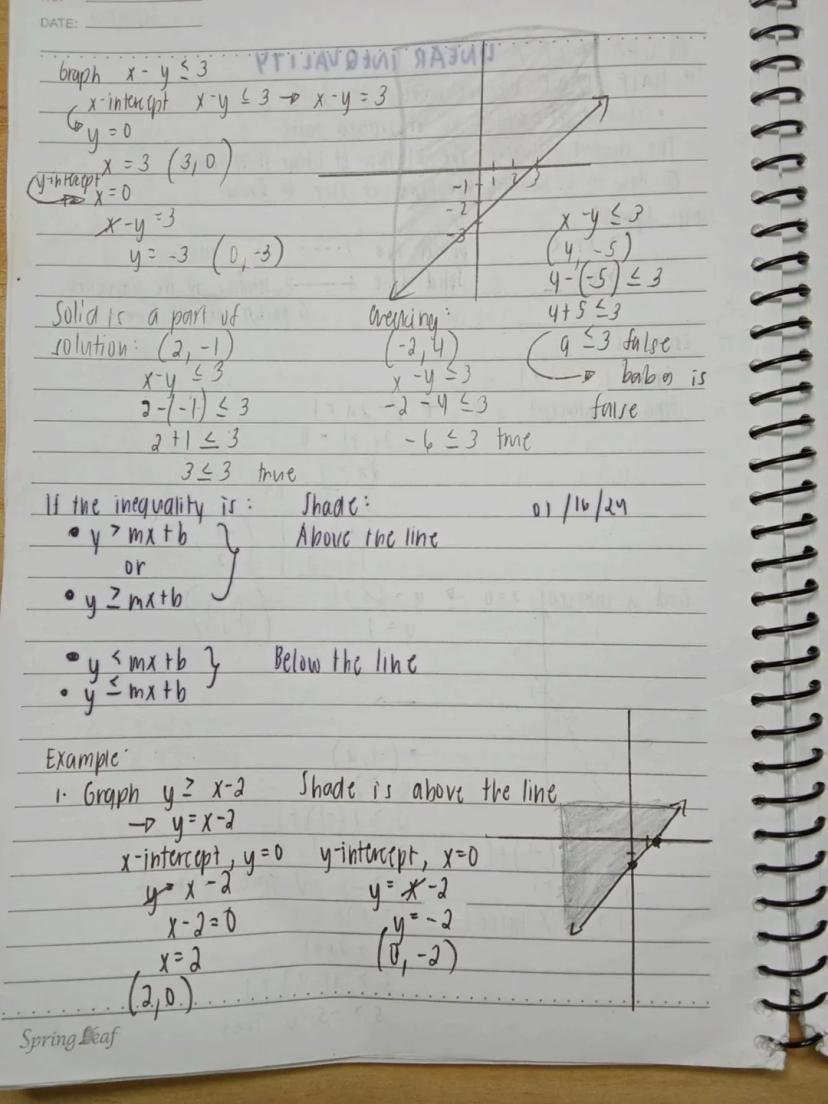 DATE:
Graph x - y ≤ 3
x-intercept x-y ≤ 3 → x-y = 3
y = 0
x = 3 (3, 0)
y-intercept
x = 0
x-y = 3
y = -3 (0, -3)
1 2 3
-1
-2
-3
x - y ≤ 3
(4, -5)
4-(-5) ≤ 3
4+5 ≤ 3
9 ≤ 3 false
→ baba is
false
Solid is a part of
solution: (2, -1)
x-y ≤ 3
2-(-1) ≤ 3
2+1 ≤ 3
3 ≤ 3 true
checking:
(-2, 4)
x - y ≤ 3
-2 -4 ≤ 3
-6 ≤ 3 true
If the inequality is: Shade: 01/16/24
• y > mx+b Above the line
or
• y ≥ mx+b
• y < mx+b Below the line
• y ≤ mx+b
Example:
1. Graph y ≥ x-2 Shade is above the line
→ y = x-2
x-intercept, y=0 y-intercept, x=0
y = x - 2 y = x - 2
x-2=0 y = -2
x = 2 (0, -2)
(2, 0)
Spring Leaf